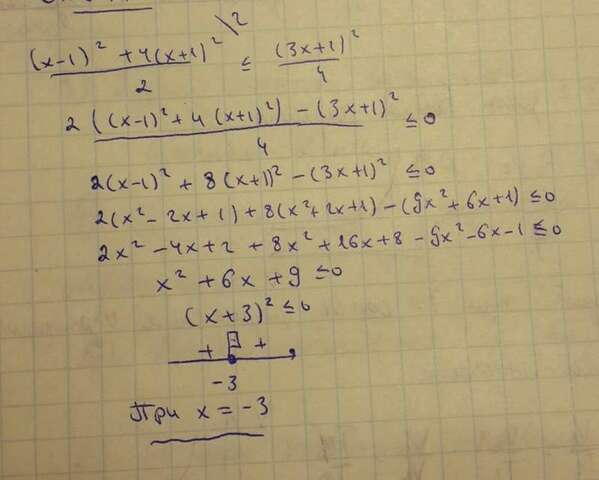 ((x-1)² + 4(x+1)²)/2 \2 ≤ (3x+1)²/4
2((x-1)² + 4(x+1)²) - (3x+1)²/4 ≤ 0
2(x-1)² + 8(x+1)² - (3x+1)² ≤ 0
2(x² - 2x + 1) + 8(x² + 2x + 1) - (9x² + 6x + 1) ≤ 0
2x² - 4x + 2 + 8x² + 16x + 8 - 9x² - 6x - 1 ≤ 0
x² + 6x + 9 ≤ 0
(x+3)² ≤ 0
+ +
-3
При x = -3